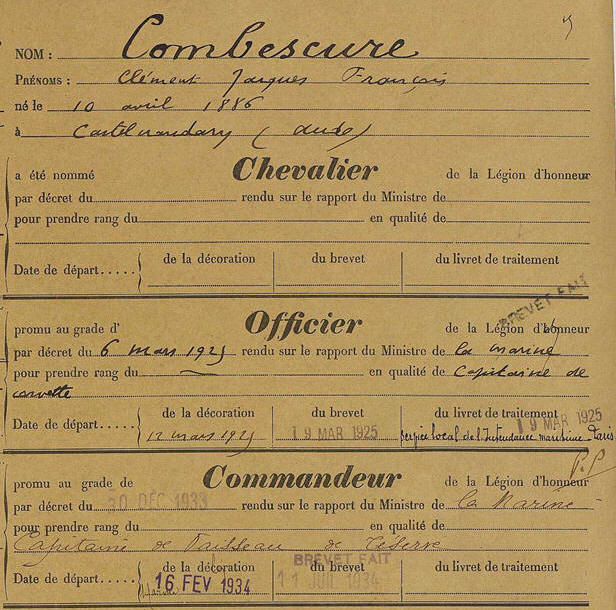 NOM : Combescure
PRÉNOMS : Clément Jacques François
né le 10 avril 1886
à Castelnaudary (Aude)
a été nommé Chevalier de la Légion d'honneur
par décret du rendu sur le rapport du Ministre de
pour prendre rang du en qualité de
Date de départ..... de la décoration du brevet du livret de traitement
BREVET FAIT
promu au grade d' Officier de la Légion d'honneur
par décret du 6 mars 1925 rendu sur le rapport du Ministre de la Marine
pour prendre rang du — en qualité de Capitaine de
corvette
Date de départ..... de la décoration du brevet du livret de traitement
12 mars 1925 19 MAR 1925 19 MAR 1925
Service local de l'Intendance maritime Paris
P.P
promu au grade de Commandeur de la Légion d'honneur
par décret du 30 DEC 1933 rendu sur le rapport du Ministre de la Marine
pour prendre rang du en qualité de
Capitaine de Vaisseau de réserve
BREVET FAIT
Date de départ..... de la décoration du brevet du livret de traitement
16 FEV 1934 11 JUIL 1934